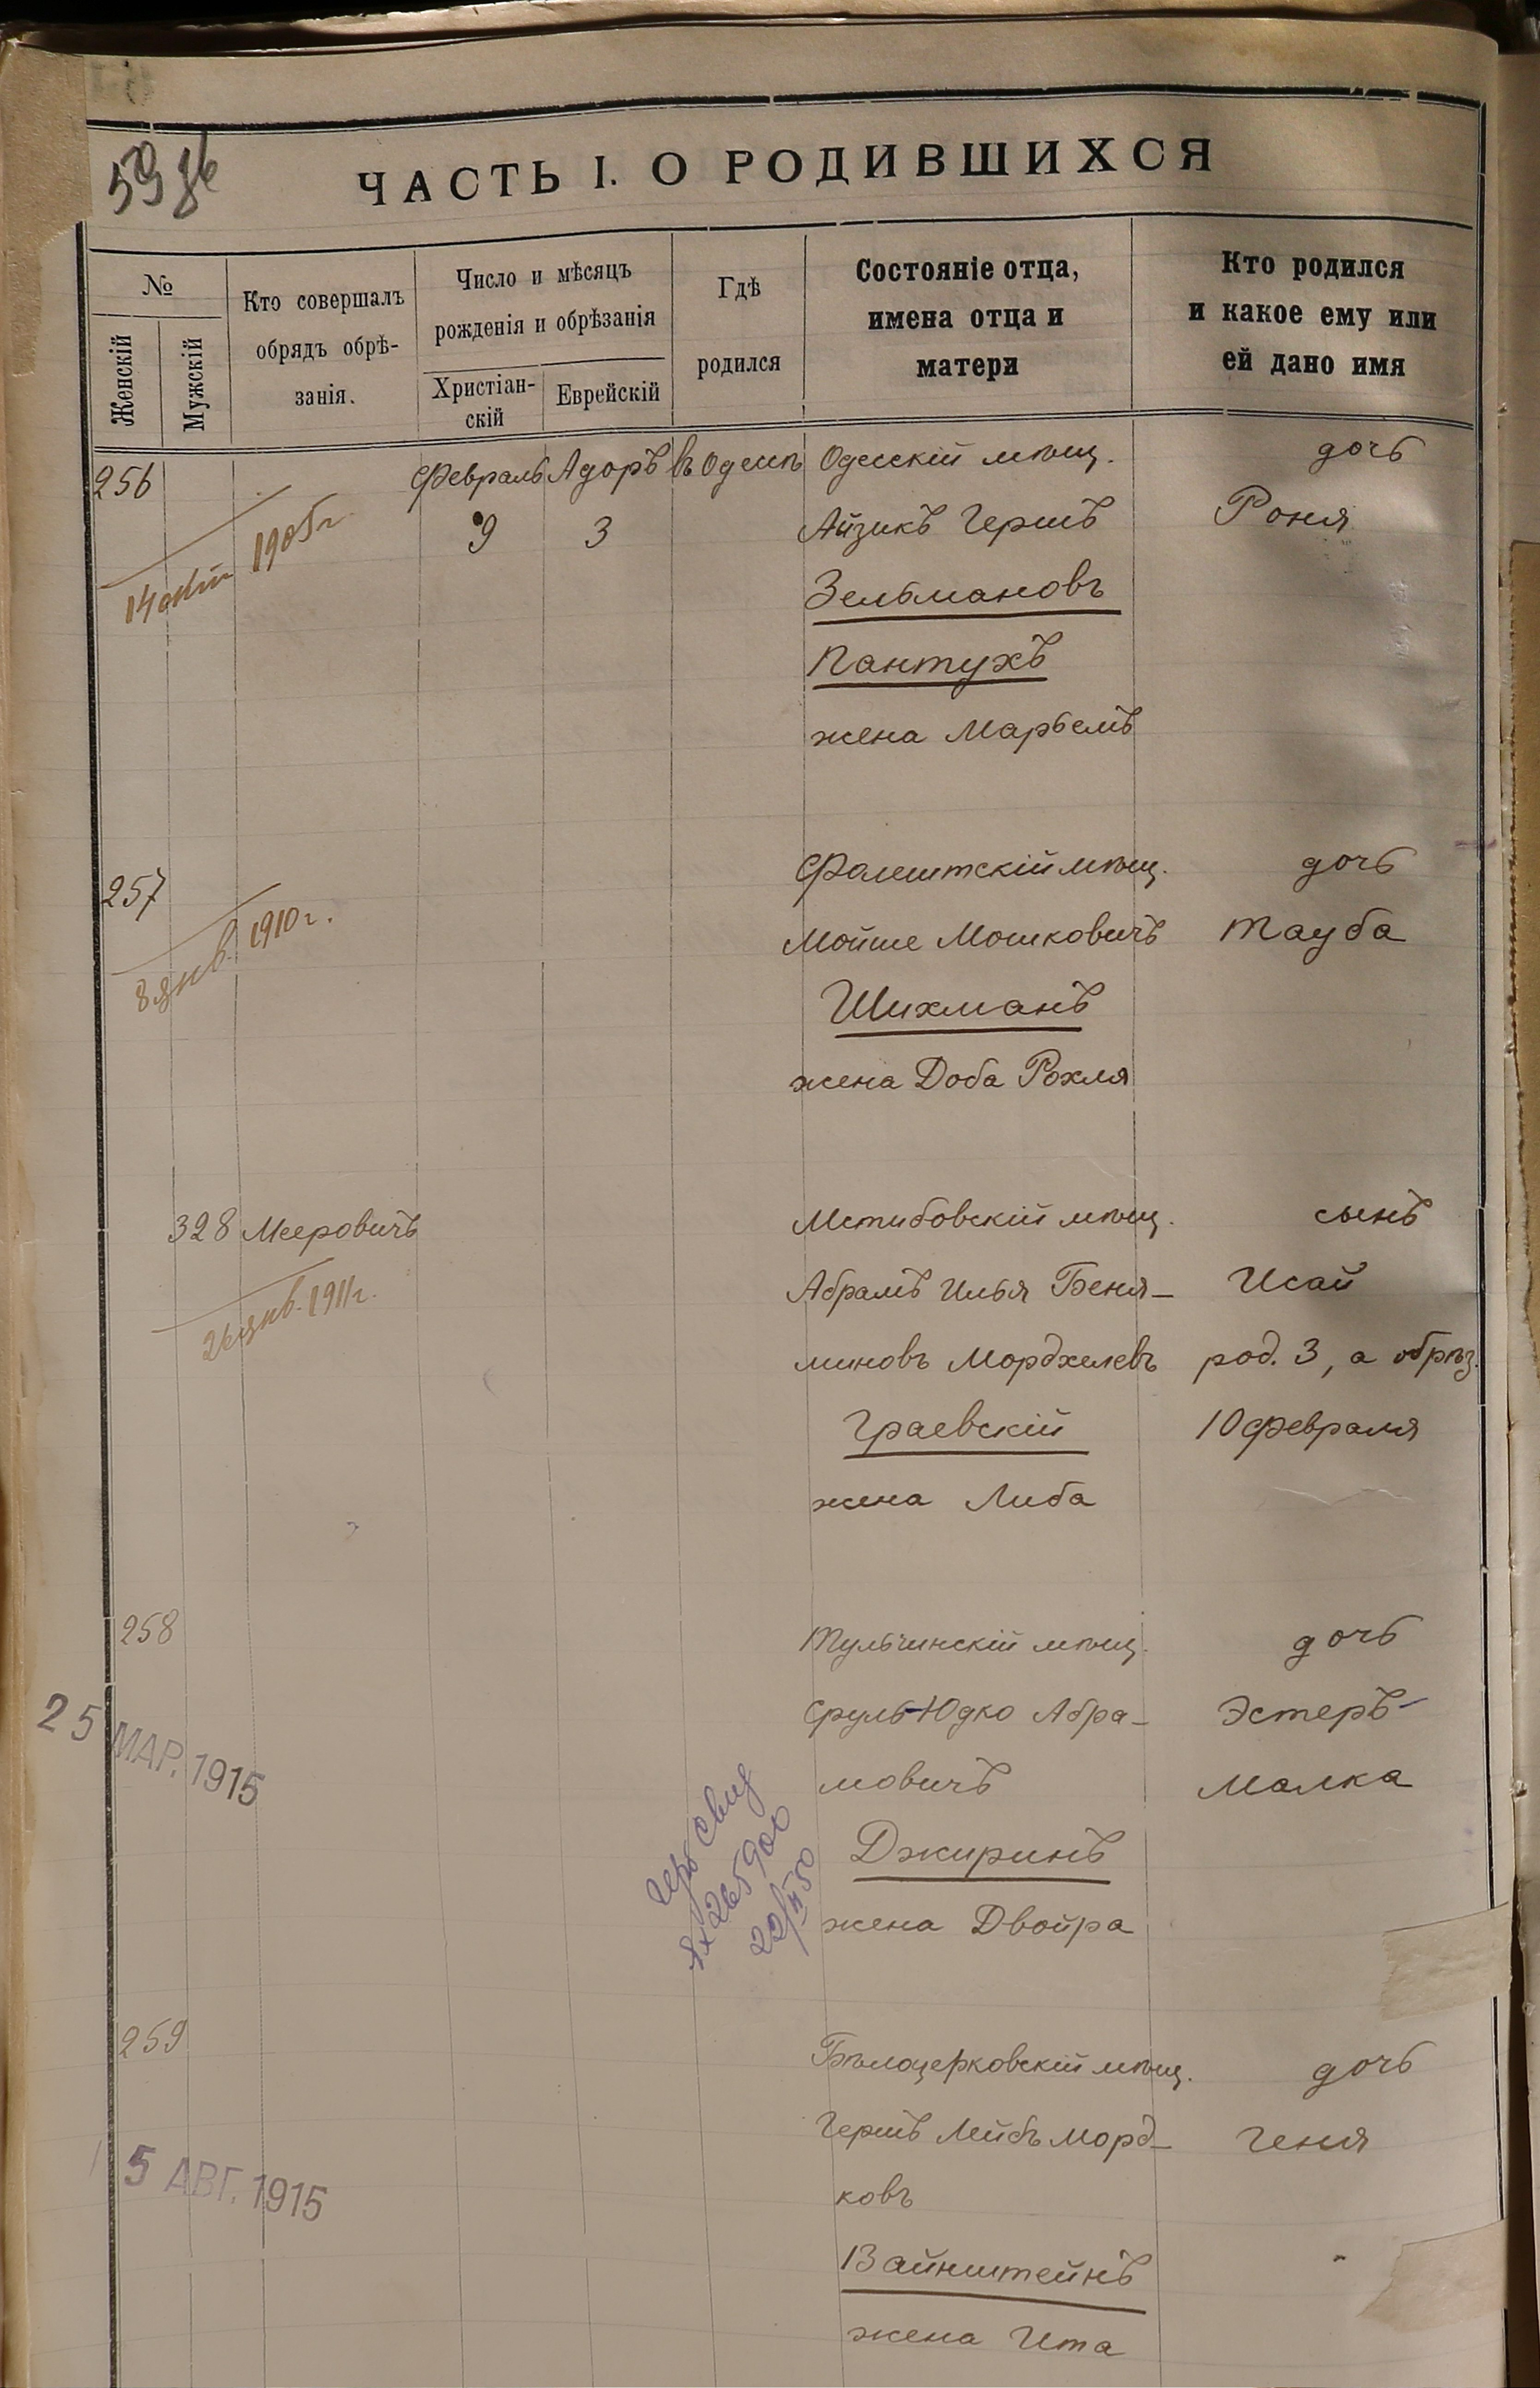 59 об
ЧАСТЬ I. О РОДИВШИХСЯ
№
Женскій
Мужскій
Кто совершалъ
обрядъ обрѣ-
занія.
Число и мѣсяцъ
рожденія и обрѣзанія
Христіан-
скій
Еврейскій
Гдѣ
родился
Состояніе отца,
имена отца и
матери
Кто родился
и какое ему или
ей дано имя
256
14 окт 1905 г.
Февраль Адоръ въ Одессѣ Одесскій мѣщ. дочь
9 3 Айзикъ Гершъ Роня
Зельмановъ
Пантухъ
жена Марьемъ
257 Фалештскій мѣщ. дочь
8 янв. 1910 г.
Мойше Мошковичъ Тауба
Шихманъ
жена Доба Рохля
328 Мееровичъ Мстибовскій мѣщ. сынъ
26 янв. 1911 г.
Абрамъ Илья Беня- Исай
миновъ Мордхелевъ род. 3, а обрѣз.
Граевскій 10 февраля
жена Либа
258 Тульчинскій мѣщ. дочь
25 МАР. 1915
Сруль-Юдко Абра- Эстеръ-
мовичъ Малка
Джиринъ
жена Двойра
свид
265900
22/II 50
259 Бѣлоцерковскій мѣщ. дочь
5 АВГ. 1915
Гершъ Лейбъ Морд- Геня
ковъ
Вайнштейнъ
жена Ита